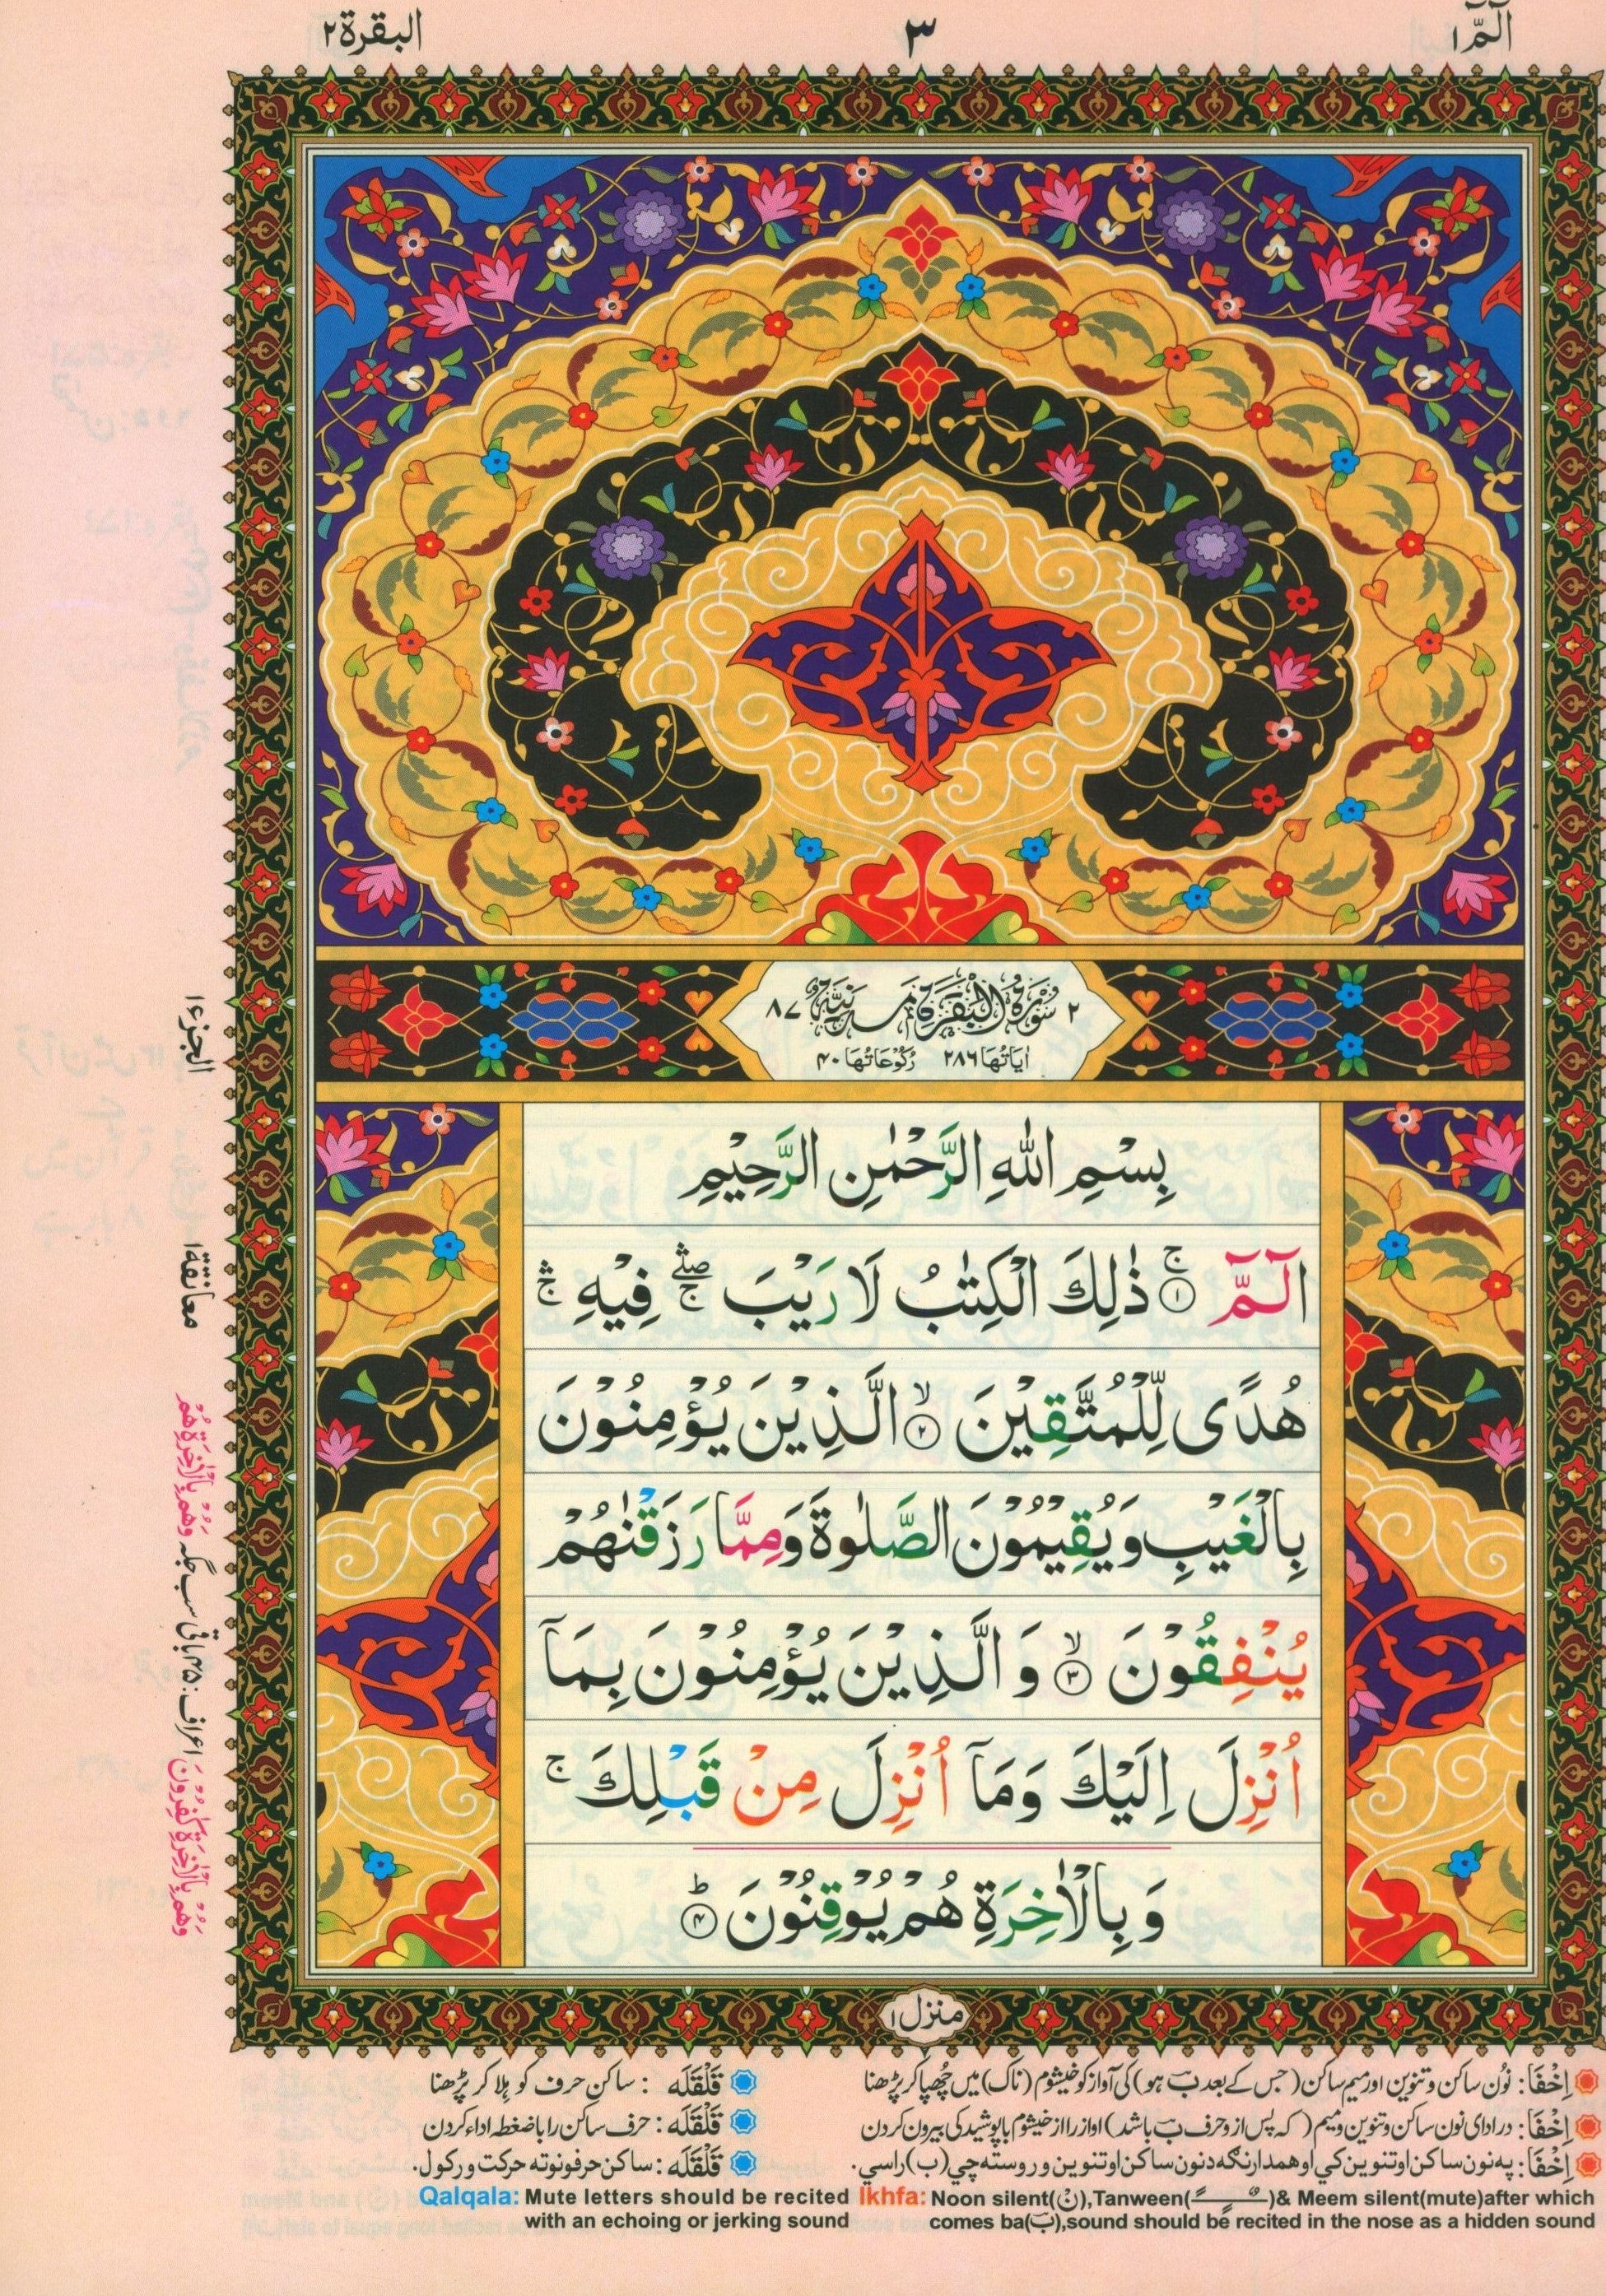 الٓمّٓ ١
٣
البقرة ٢
٢ سُوْرَةُ الْبَقَرَةِ مَدَنِيَّةٌ ٨٧
اٰيَاتُهَا ٢٨٦ رُكُوْعَاتُهَا ٤٠
بِسْمِ اللّٰهِ الرَّحْمٰنِ الرَّحِيْمِ
الٓمّٓ ۚ﴿١﴾ ذٰلِكَ الْكِتٰبُ لَا رَيْبَ ۛۖۚ فِيْهِ ۛۚ
هُدًى لِّلْمُتَّقِيْنَ ۙ﴿٢﴾ الَّذِيْنَ يُؤْمِنُوْنَ
بِالْغَيْبِ وَيُقِيْمُوْنَ الصَّلٰوةَ وَمِمَّا رَزَقْنٰهُمْ
يُنْفِقُوْنَ ۙ﴿٣﴾ وَ الَّذِيْنَ يُؤْمِنُوْنَ بِمَآ
اُنْزِلَ اِلَيْكَ وَمَآ اُنْزِلَ مِنْ قَبْلِكَ ۚ
وَ بِالْاٰخِرَةِ هُمْ يُوْقِنُوْنَ ؕ﴿٤﴾
منزل ١
الجزء ١
معانقة ١
وَهُمْ بِالْاٰخِرَةِ هُمْ سب جگہ
اعراف: ٤٥ باقی
وَهُمْ بِالْاٰخِرَةِ كٰفِرُوْنَ
اِخْفَا: نُون ساکن و تنوین اور میم ساکن (جس کے بعد ب ہو) کی آواز کو خیشوم (ناک) میں چُھپا کر پڑھنا
اِخْفَا: در ادای نون ساکن و تنوین و میم (که پس از و حرف ب باشد) اواز را از خیشوم با پوشیدگی بیرون کردن
اِخْفَا: په نون ساکن او تنوین کي او همدارنګه د نون ساکن او تنوین وروسته چي (ب) راسي.
قَلْقَلَه: ساکن حرف کو ہِلا کر پڑھنا
قَلْقَلَه: حرف ساکن را با ضغطه اداء کردن
قَلْقَلَه: ساکن حرفونو ته حرکت ورکول.
Ikhfa: Noon silent(نْ),Tanween(ـًـٍـٌ)& Meem silent(mute)after which
comes ba(ب),sound should be recited in the nose as a hidden sound
Qalqala: Mute letters should be recited
with an echoing or jerking sound